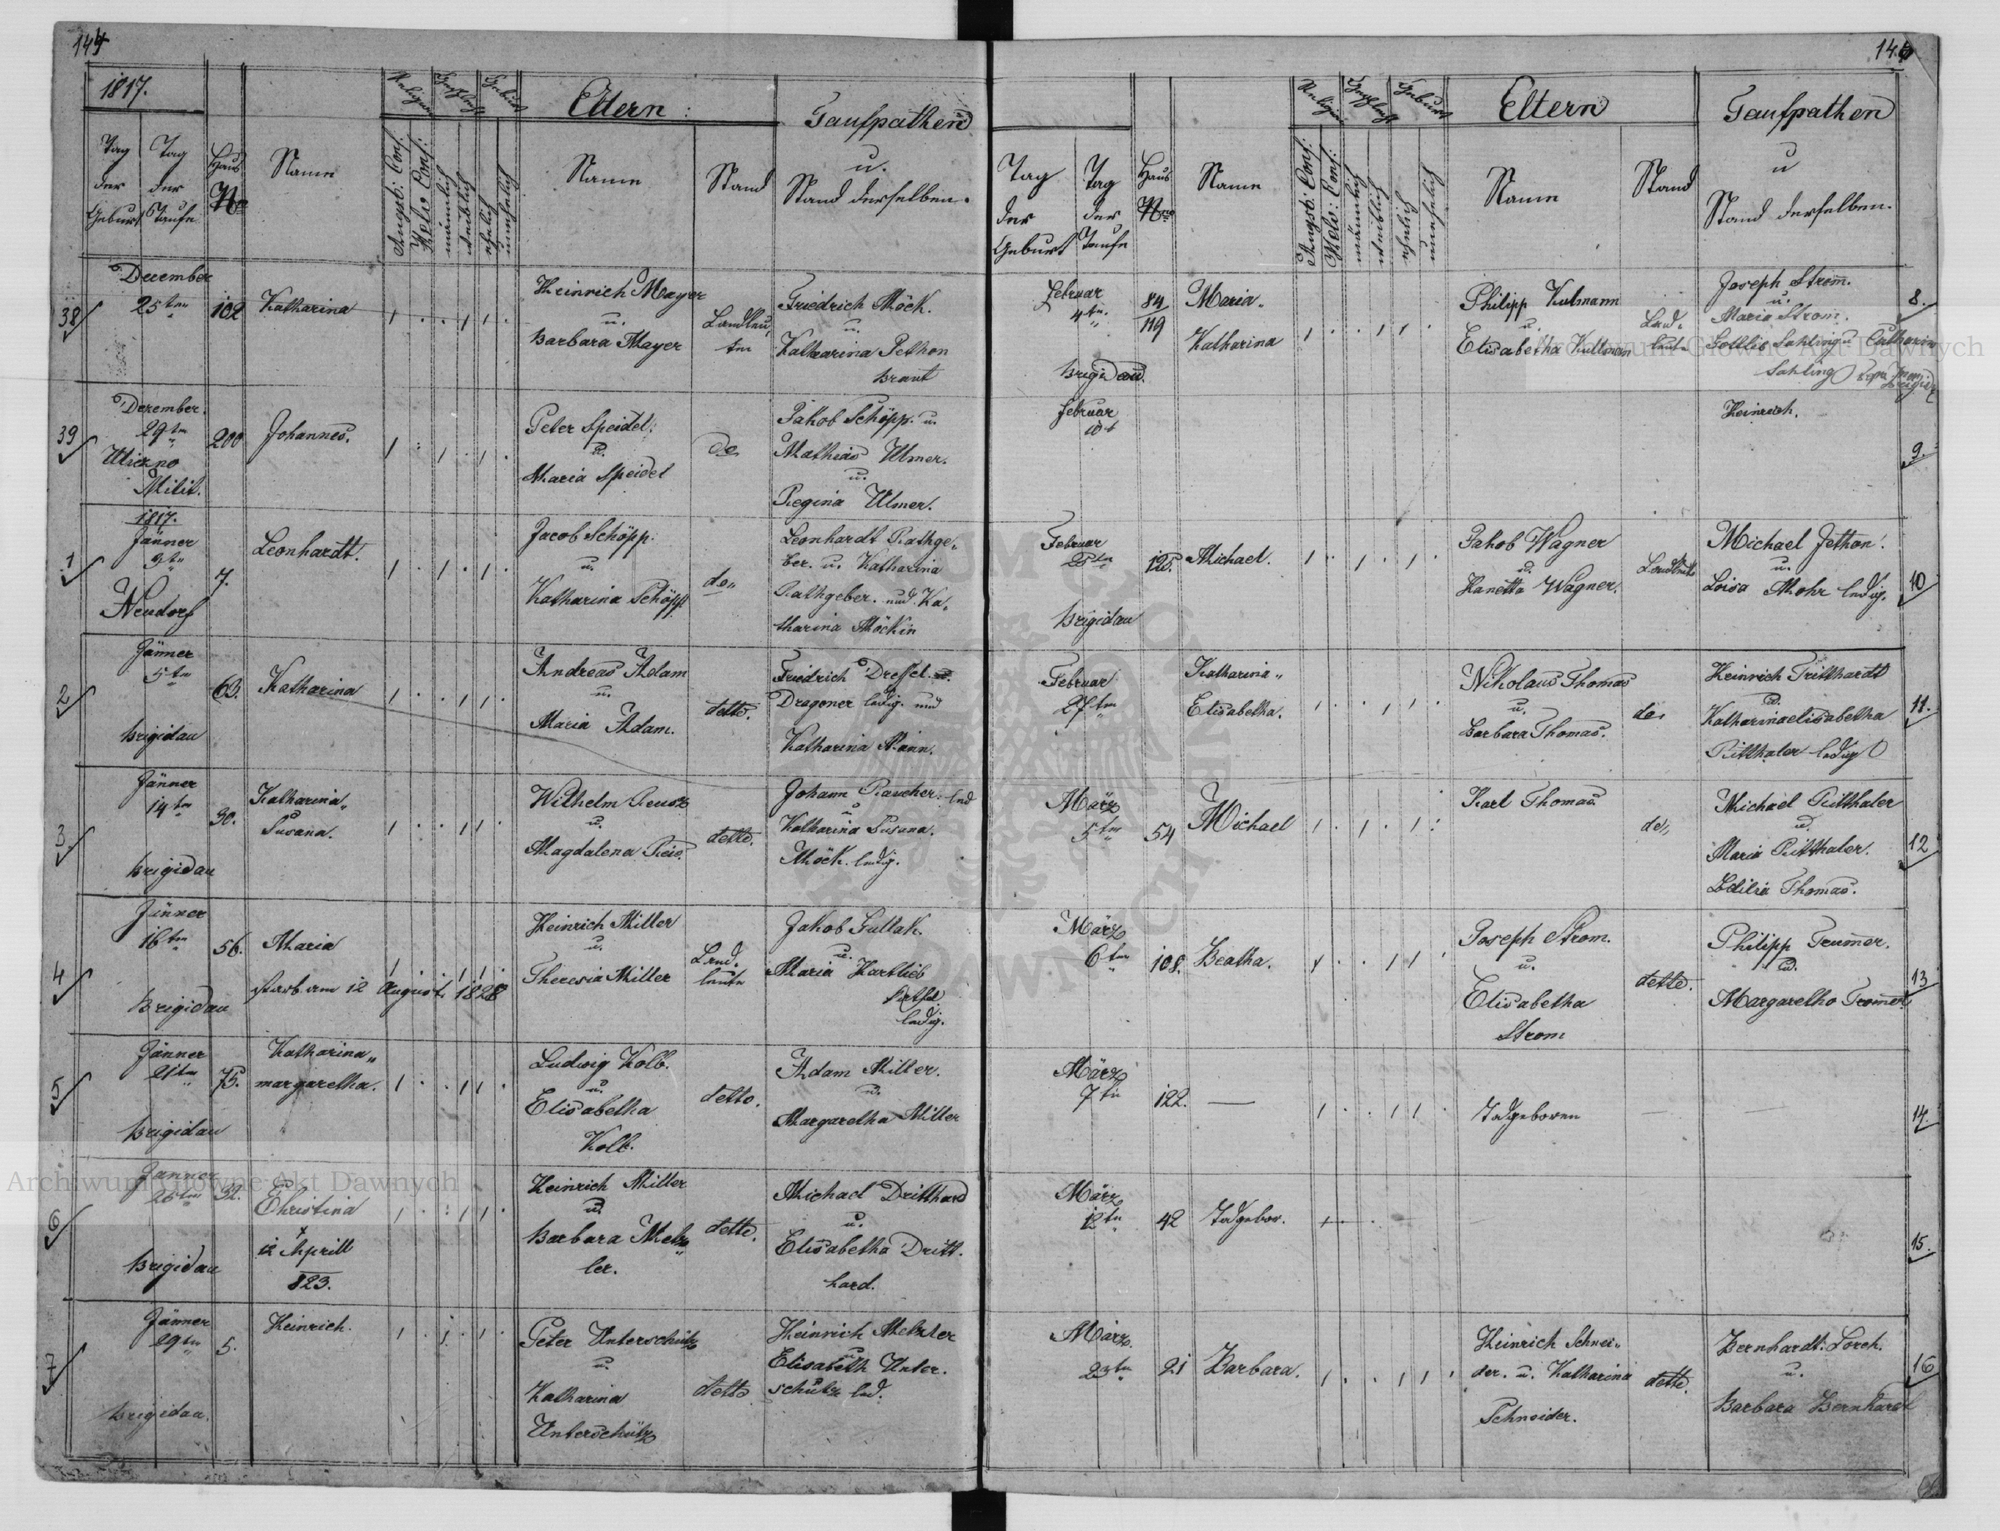 144
1817.
Tag der Geburt
Tag der Taufe
Haus Nro
Name
Religion
Geschlecht
Geburt
Augsb: Conf.
Helv: Conf:
männlich
weiblich
ehelich
unehelich
Eltern:
Name
Stand
Taufpathen
u.
Stand derselben.
38
December
25ten
102
Katharina
Heinrich Mayer
u.
Barbara Mayer
Landleu
ten
Friedrich Möck.
u.
Katharina Pethon
Braut
39
Dezember.
29ten
Uliczno
Milit.
200
Johannes.
Peter Speidel:
u.
Maria Speidel
do
Jakob Schöpp. u.
Mathias Ulmer.
u.
Regina Ulmer.
1
1817.
Jänner
9ten
Neudorf
7.
Leonhardt.
Jacob Schöpp.
u.
Katharina Schöpp
do„
Leonhardt Rathge„
ber. u. Katharina
Rathgeber. und Ka„
tharina Möckin
2
Jänner
5ten
Brigidau
63.
Katharina
Andreas Adam
u.
Maria Adam.
detto.
Friedrich Dressel. u.
Dragoner ledig. und
Katharina Mann.
3
Jänner
14ten
Brigidau
30.
Katharina„
Susana.
Wilhelm Reus
u.
Magdalena Reis.
detto.
Johann Raucher. led
u
Katharina Susana.
Möck. ledig.
4
Jänner
16ten
Brigidau
56.
Maria
starb am 12 August. 1828
Heinrich Miller
u.
Theresia Miller
Land„
leute
Jakob Gullak.
u.
Maria Hartlieb
ledig.
5
Jänner
21ten
Brigidau
75.
Katharina„
margaretha.
Ludwig Kolb.
u.
Elisabetha
Kolb.
detto.
Adam Miller.
u.
Margaretha Miller
6
Janner
26ten
Brigidau
32.
Christina
12 Aprill
823.
Heinrich Miller
u
Barbara Metz„
ler.
detto.
Michael Dritthard
u.
Elisabetha Dritt.
hard.
7
Jänner
29ten
Brigidau.
5.
Heinrich.
Peter Unterschütz
u.
Katharina
Unterschütz
detto
Heinrich Metzler
u
Elisabeth Unter.
schütz led.
Tag der Geburt
Tag der Taufe
Haus Nro
Name
Religion
Geschlecht
Geburt
Augsb: Conf:
Helv: Conf:
männlich
weiblich
ehelich
unehelich
Eltern
Name
Stand
Taufpathen
u
Stand derselben.
Februar
4ten
Brigidau.
84/119
Maria„
Katharina
Philipp Kulmann
u.
Elisabetha Kullman
Land„
leute
Joseph Strom.
u.
Maria Strom.
Gottlib Sahling u Catharin
Sahling
8.
Februar
Heinrich.
9.
Februar
25ten
Brigidau
125.
Michael.
Jakob Wagner
u.
Hanetta Wagner.
Landleute
Michael Jethon.
u.
Loisa Mohr ledig.
10
Februar
27ten
Katharina„
Elisabetha.
Nikolaus Thomas
u.
Barbara Thomas.
do„
Heinrich Tritthardt
u.
Katharinaelisabetha
Ritthaler ledig
11.
März
5ten
54
Michael
Karl Thomas
do„
Michael Ritthaler
u.
Maria Ritthaler.
Thomas.
12
März
6ten
108.
Beatha.
Joseph Strom.
u.
Elisabetha
Strom
detto.
Philipp Trumer.
u.
Margaretha Tromer.
13
März
7ten
122.
—
Todgeboren
14.
März
12ten
42
Todgebor.
15.
März.
23ten
21
Barbara.
Heinrich Schnei„
der. u. Katharina
Schneider.
detto.
Bernhardt: Lorch.
u.
Barbara Bernhardt
16
Archiwum Główne Akt Dawnych
Archiwum Główne Akt Dawnych